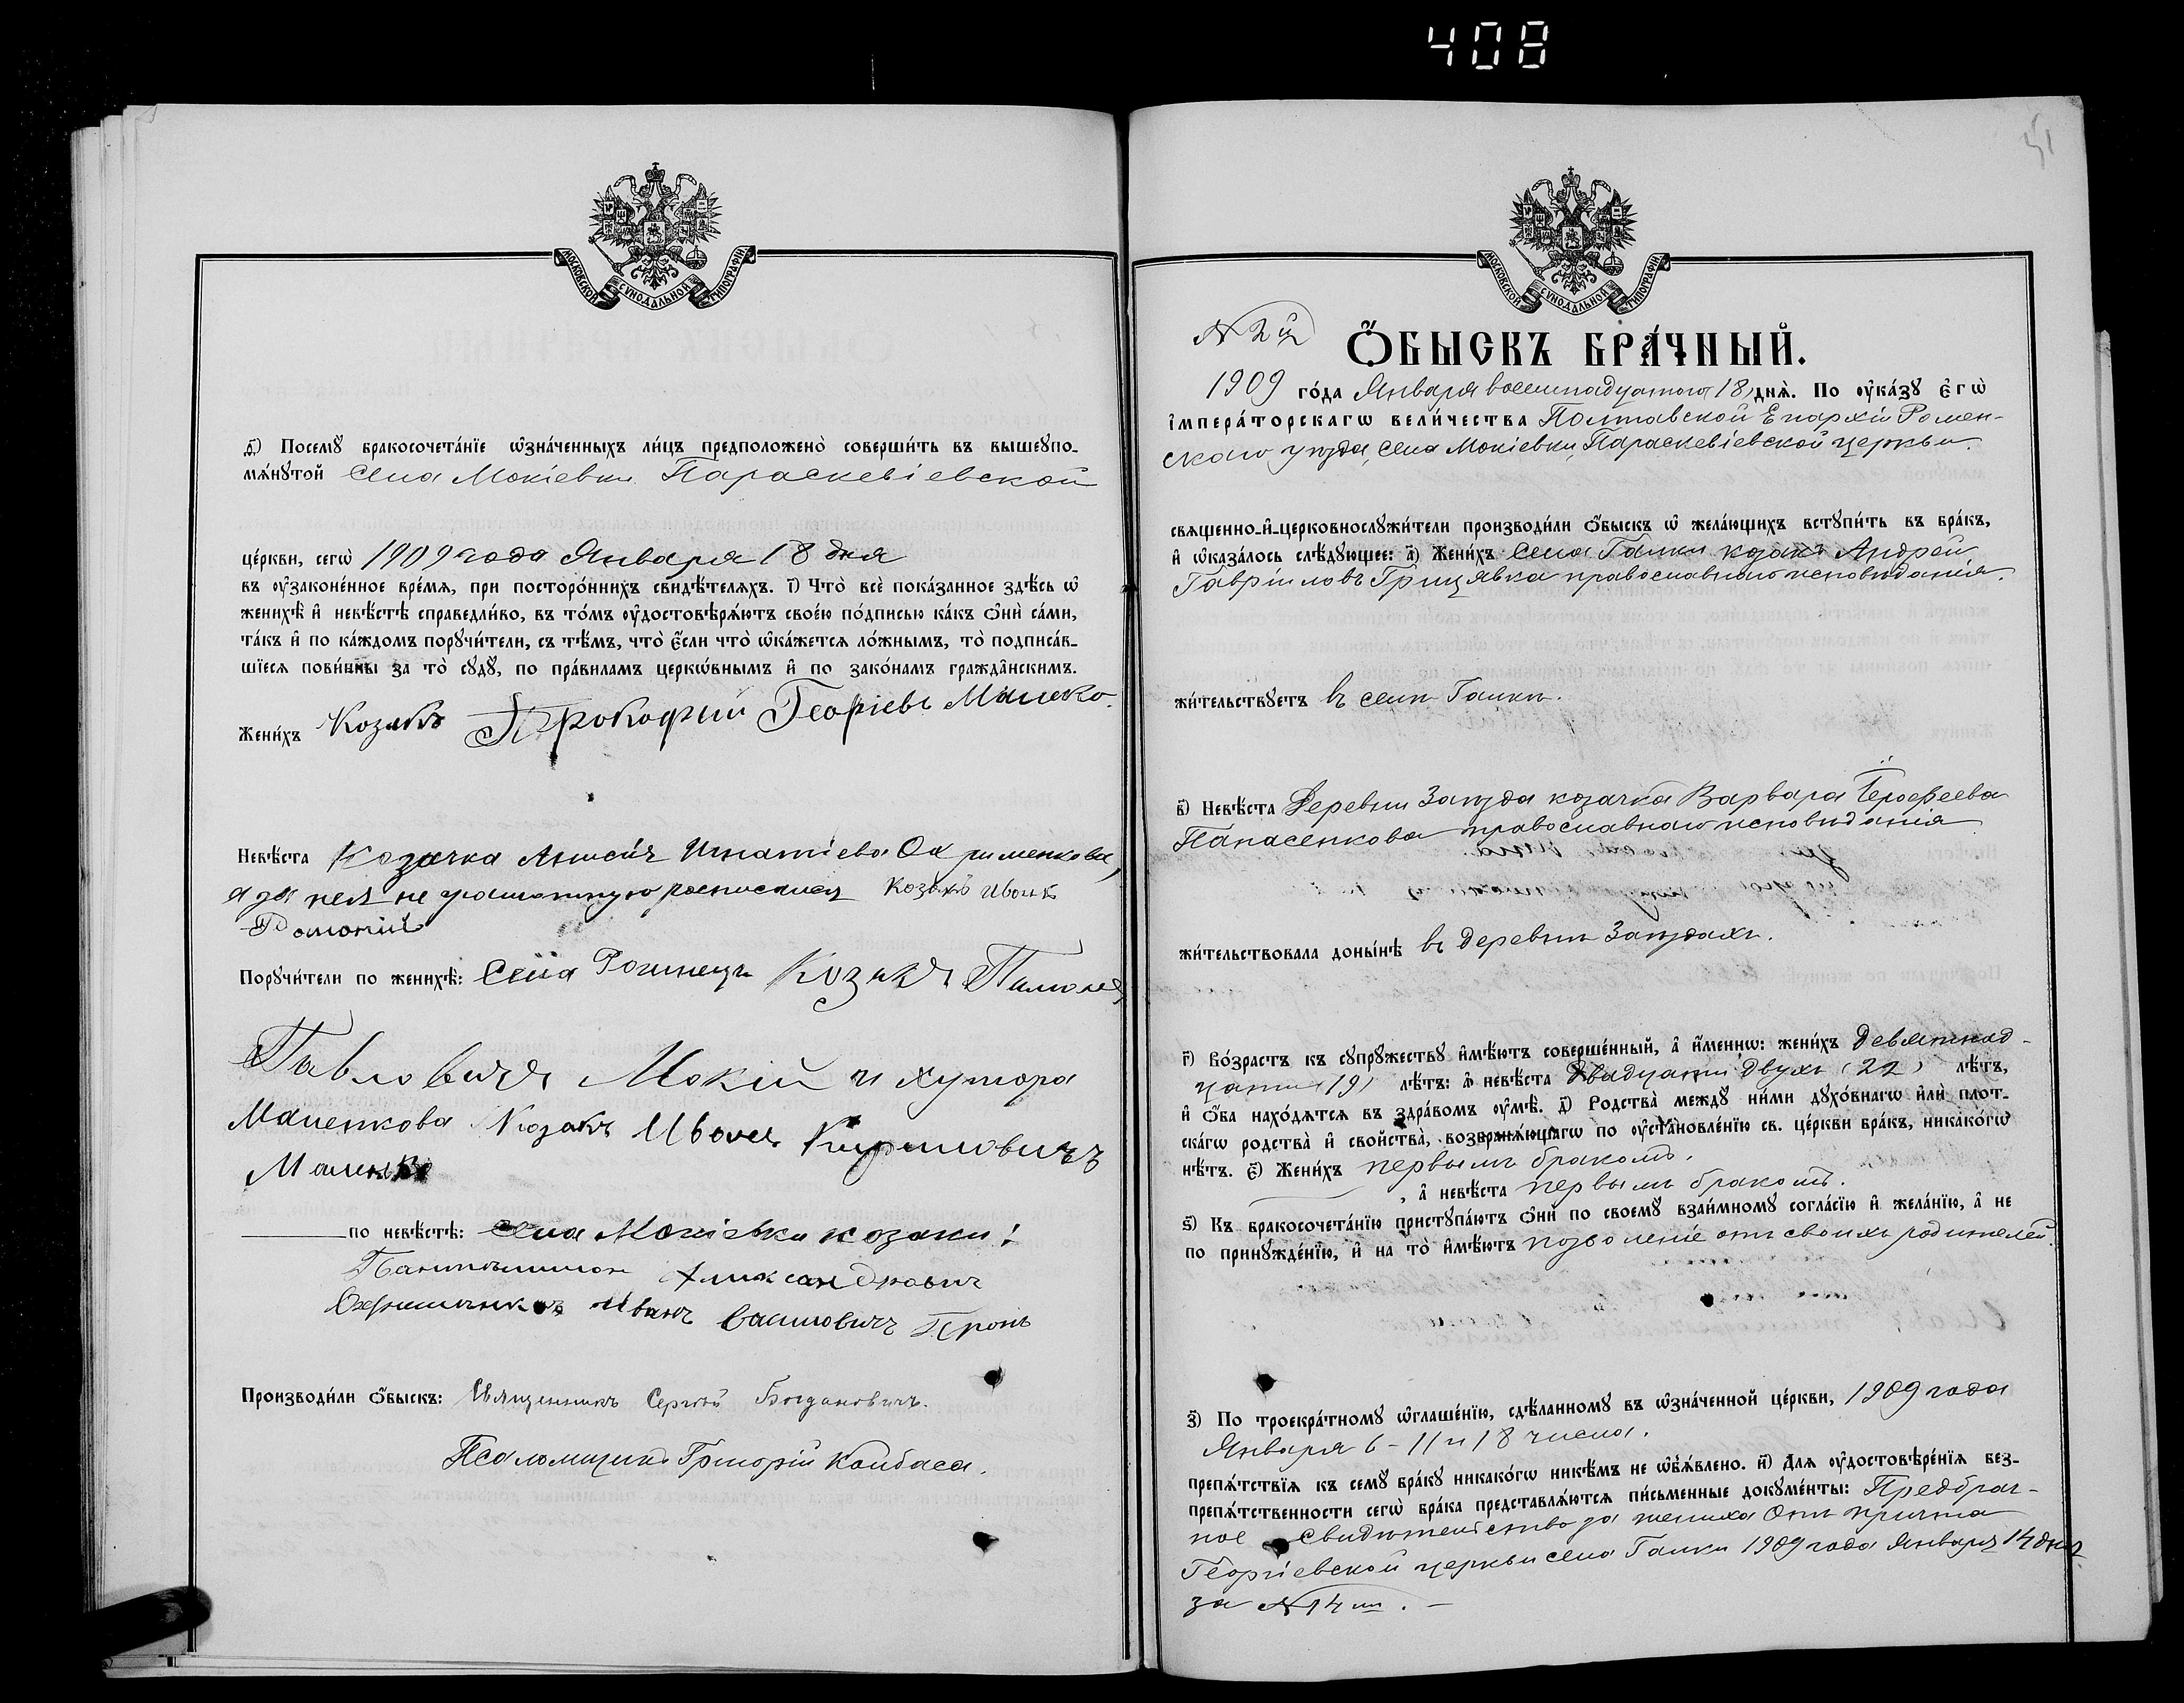 408
МОСКОВСКОЙ СѴНОДАЛЬНОЙ ТИПОГРАФІИ
д҃) Посемꙋ бракосочета́нїе ѡ҆зна́ченныхъ ли́цъ предположено̀ соверши́ть въ вышеꙋпо-
мѧ́нꙋтой села Мокіевки Параскевіевской
це́ркви, сегѡ̀ 1909 года Января 18 дня
въ ᲂу҆законе́нное вре́мѧ, при посторо́ннихъ свидѣ́телѧхъ. і҃) Что̀ всѐ пока́занное здѣ́сь ѡ҆
женихѣ̀ и҆ невѣ́стѣ справедли́во, въ то́мъ ᲂу҆достовѣрѧ́ютъ свое́ю по́дписью ка́къ ѻ҆нѝ са́ми,
та́къ и҆ по ка́ждомъ порꙋчи́тели, съ тѣ́мъ, что̀ є҆́сли что̀ ѡ҆ка́жетсѧ ло́жнымъ, то̀ подписа́в-
шїесѧ пови́нны за то̀ сꙋдꙋ̀, по пра́виламъ церкѡ́внымъ и҆ по зако́намъ гражда̂нскимъ.
Жени́хъ Козакъ Прокофий Георгіевъ Малько.
Невѣ́ста Козачка Анисія Игнатіева Охрименкова,
а за нея не грамотную росписался Козакъ Иванъ
Порꙋчи́тели по женихѣ̀: Села Рогинецъ Козакъ
Павловичъ Мокій и хутора
Маценкова Козакъ Иванъ Кириловичъ
по невѣ́стѣ: села Мокіевки козаки:
Пантелимон Александрович
Охрименковъ Иванъ Василовичъ
Производи́ли ѻ҆́быскъ: Священникъ Сергій Богдановичъ.
Псаломщикъ Григорій Ковбаса.
51
МОСКОВСКОЙ СѴНОДАЛЬНОЙ ТИПОГРАФІИ
N 2й
Ѻ҆́БЫСКЪ БРА́ЧНЫЙ.
1909 го́да Января восемнадцатого 18 днѧ̀. По ᲂу҆ка́зꙋ є҆гѡ̀
і҆мпера́торскагѡ вели́чества Полтавской Епархіи Ромен-
скаго уѣзда, села Мокіевки, Параскевіевской церкви.
свѧщенно-и҆-церковнослꙋжи́тели производи́ли ѻ҆́быскъ ѡ҆ жела́ющихъ встꙋпи́ть въ бра́къ,
и҆ ѡ҆каза́лось слѣ́дꙋющее: а҃) Жени́хъ села Галки козакъ Андрей
Гавріиловъ Грицявка православнаго исповѣданія.
жи́тельствꙋетъ въ селѣ Галкѣ.
в҃) Невѣ́ста Деревни Заѣзда козачка Варвара Ерофеева
Панасенкова православнаго исповѣданія
жи́тельствовала доны́нѣ въ деревнѣ Заѣздахъ.
г҃) Во́зрастъ къ сꙋпрꙋжествꙋ и҆мѣ́ютъ соверше́нный, а҆ и҆́меннѡ: жени́хъ девятнад-
цати (19) лѣ́тъ: а҆ невѣ́ста двадцати двухъ (22) лѣ́тъ,
и҆ ѻ҆́ба нахо́дѧтсѧ въ здра́вомъ ᲂу҆мѣ̀. д҃) Родства̀ междꙋ ни́ми дꙋхо́внагѡ и҆лѝ плот-
ска́гѡ родства̀ и҆ сво́йства̀, возбранѧ́ющагѡ по ᲂу҆становле́нїю св. це́ркви бра́къ, никако́гѡ
нѣ́тъ. є҃) Жени́хъ первымъ бракомъ.
, а҆ невѣ́ста первымъ бракомъ.
ѕ҃) Къ бракосочета́нїю пристꙋпа́ютъ ѻ҆нѝ по своемꙋ̀ взаи́мномꙋ согла́сїю и҆ жела́нїю, а҆ не
по принꙋжде́нїю, и҆ на то̀ и҆мѣ́ютъ позволеніе отъ своихъ родителей.
з҃) По троекра́тномꙋ ѡ҆глаше́нїю, сдѣ́ланномꙋ въ ѡ҆зна́ченной це́ркви, 1909 года
Января 6 - 11 и 18 числа.
препѧ́тствїѧ къ семꙋ̀ бра́кꙋ никако́гѡ никѣ́мъ не ѡ҆б̾ѧ́влено. и҃) Длѧ ᲂу҆достовѣре́нїѧ без-
препѧ́тственности сегѡ̀ бра́ка представлѧ́ютсѧ пи́сьменные докꙋме́нты: Предбрач-
ное свидѣтельство за жениха отъ причта
Георгіевской церкви села Галки 1909 года Января 14 дня
за N 14 м.